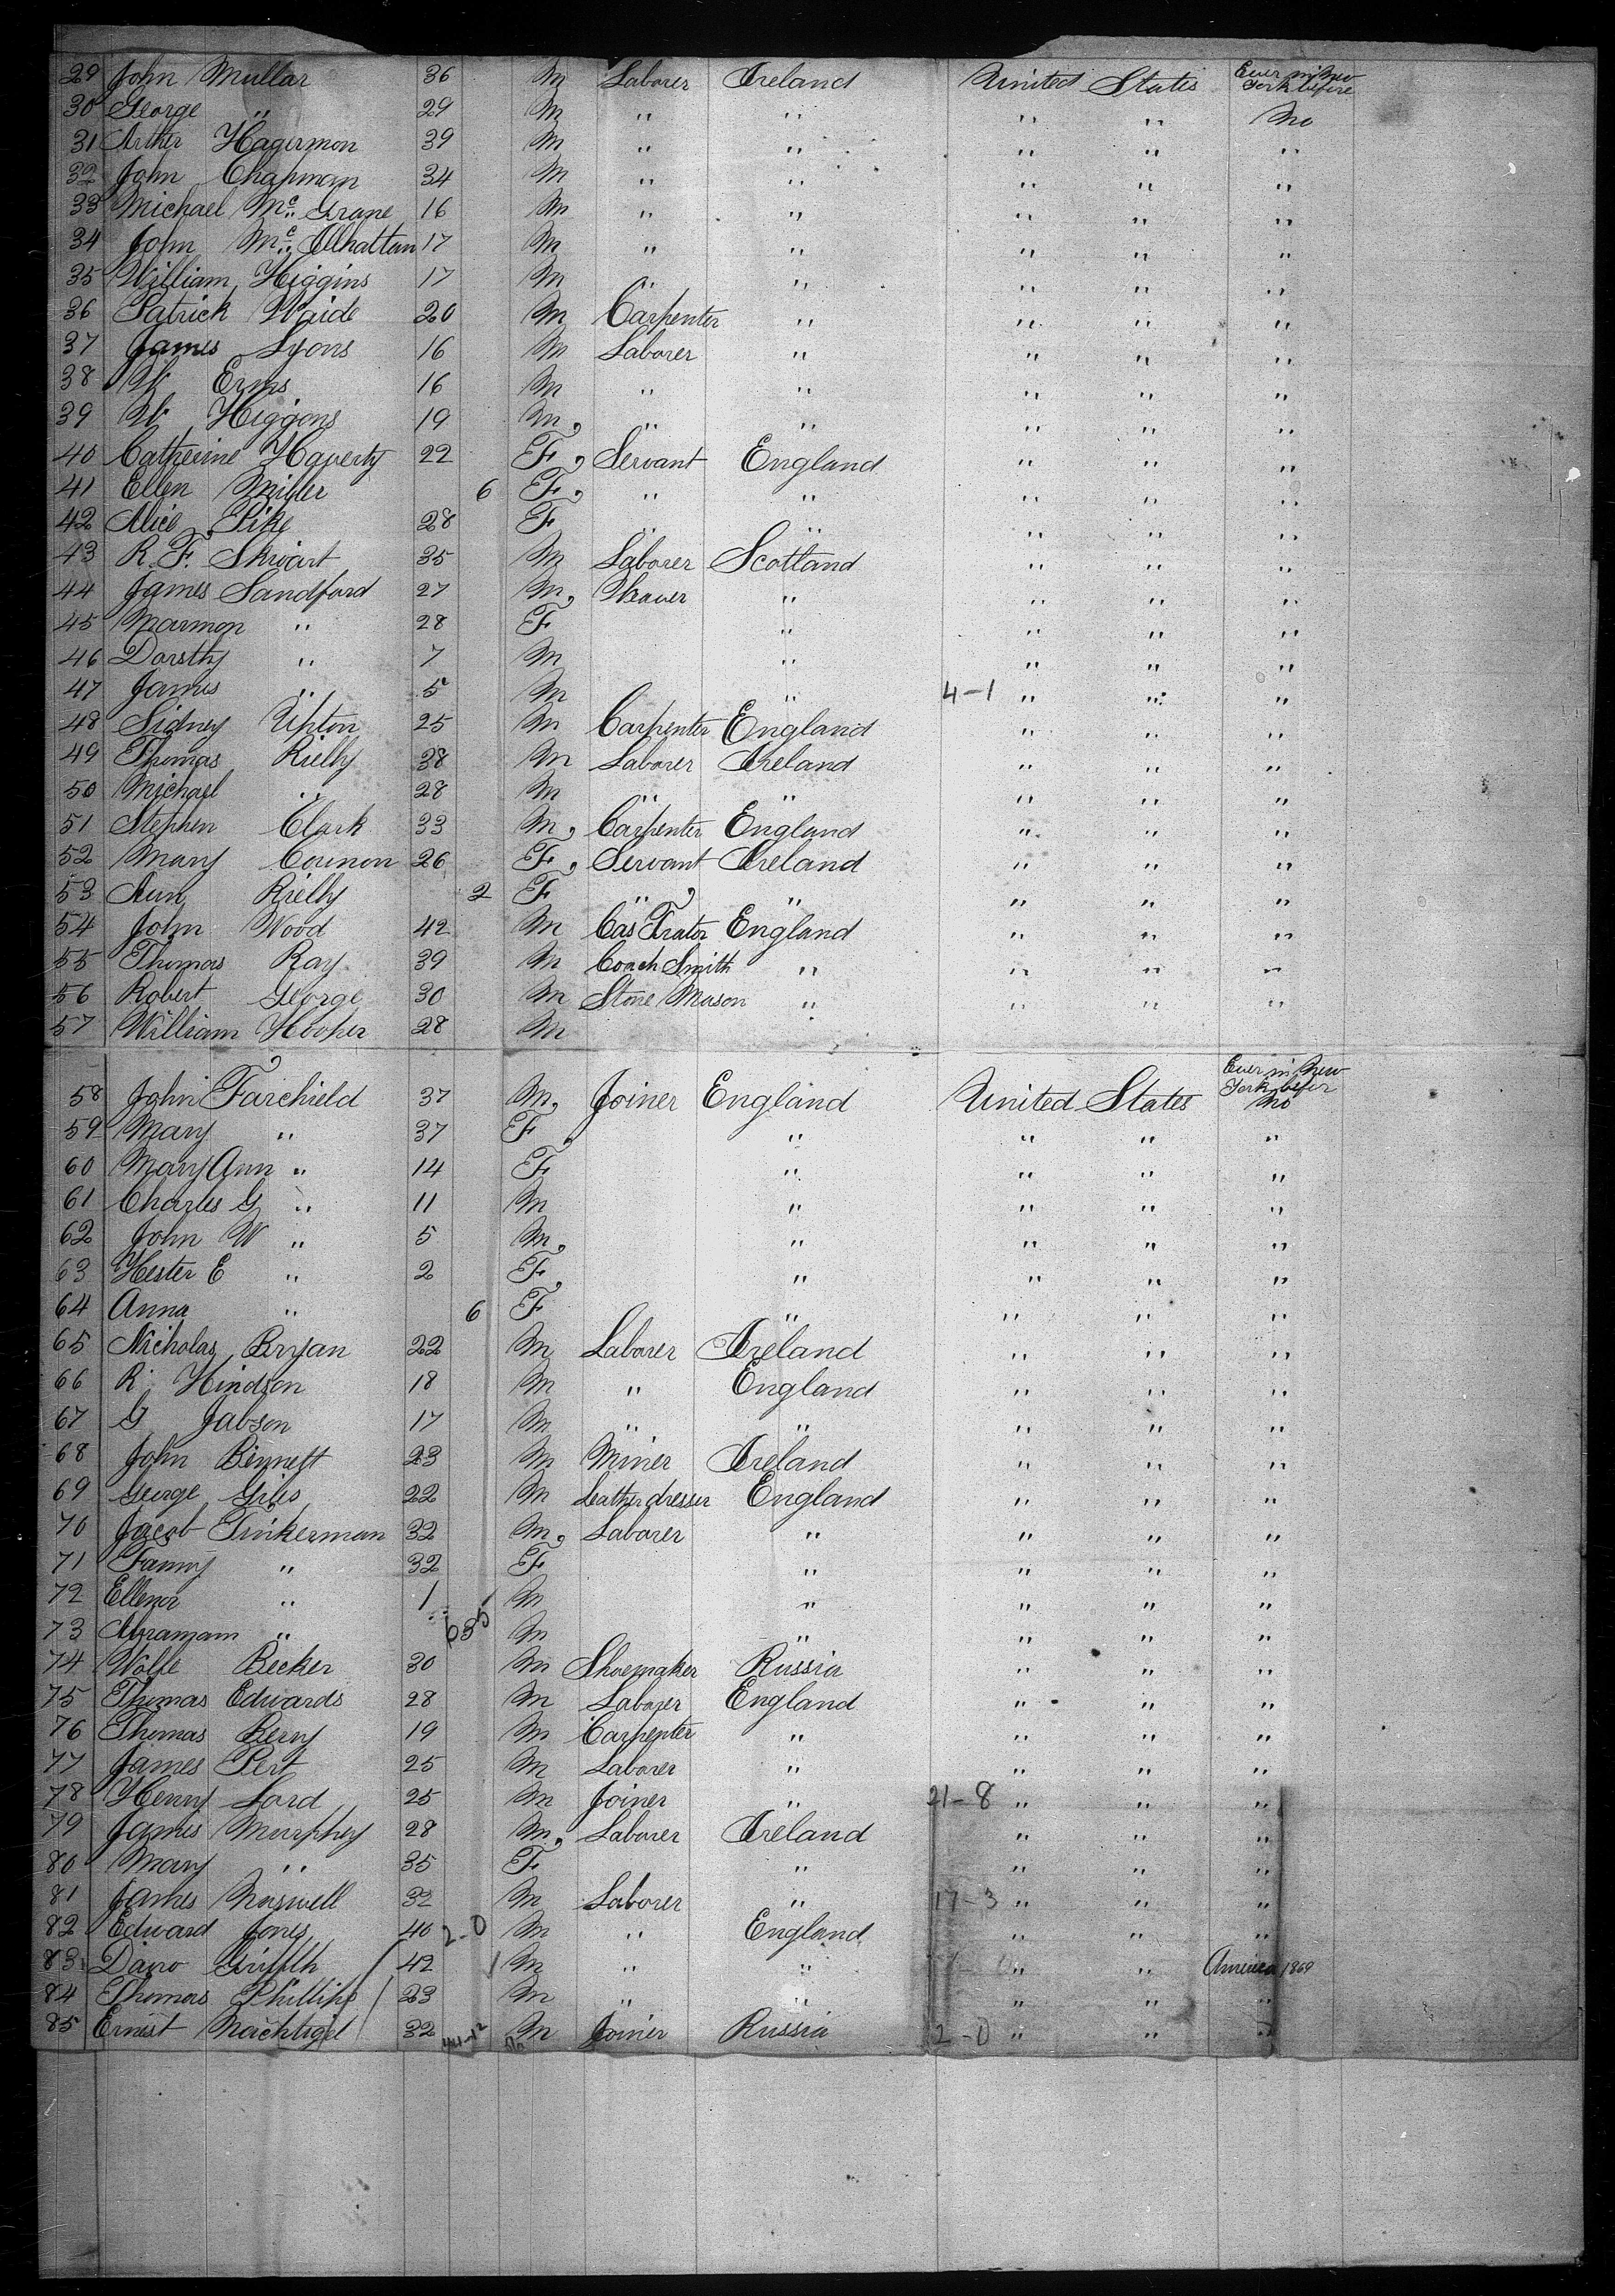 29 John Mullar 36 M Laborer Ireland United States Ever in New York before
30 George " 29 M " " " " No
31 Arther Hagermon 39 M " " " " "
32 John Chapman 34 M " " " " "
33 Michael Mc Grane 16 M " " " " "
34 John Mc Elhattan 17 M " " " " "
35 William Higgins 17 M " " " " "
36 Patrick Waide 20 M Carpenter " " " "
37 James Lyons 16 M Laborer " " " "
38 W Erms 16 M " " " " "
39 W Higgons 19 M " " " " "
40 Catherine Haverty 22 F Servant England " " "
41 Ellen Miller 6 F " " " " "
42 Alice Pike 28 F " " " " "
43 R. F. Skwart 35 M Laborer Scotland " " "
44 James Sandford 27 M Weaver " " " "
45 Marmon " 28 F " " " "
46 Dorsthy " 7 M " " " "
47 James " 5 M " 4-1 " " "
48 Sidney Upton 25 M Carpenter England " " "
49 Thomas Rielly 38 M Laborer Ireland " " "
50 Michael " 28 M " " " " "
51 Stephen Clark 33 M Carpenter England " " "
52 Mary Connon 26 F Servant Ireland " " "
53 Ann Rielly 2 F " " " " "
54 John Wood 42 M England " " "
55 Thomas Ray 39 M Coach Smith " " " "
56 Robert George 30 M Stone Mason " " " "
57 William Hooper 28 M
58 John Farchield 37 M Joiner England United States Ever in New York befor No
59 Mary " 37 F " " " "
60 Mary Ann " 14 F " " " "
61 Charles G " 11 M " " " "
62 John W " 5 M " " " "
63 Hester E " 2 F " " " "
64 Anna " 6 F " " " "
65 Nicholas Bryan 22 M Laborer Ireland " " "
66 R. Hindson 18 M " England " " "
67 G Jabson 17 M " " " " "
68 John Bennett 23 M Miner Ireland " " "
69 George Giles 22 M Leather dresser England " " "
70 Jacob Tinkerman 32 M Laborer " " " "
71 Fanny " 32 F " " " "
72 Ellenor " 1 M " " " "
73 Abramam " M " " " "
74 Wolfe Becker 30 M Shoemaker Russia " " "
75 Thomas Edwards 28 M Laborer England " " "
76 Thomas Berry 19 M Carpenter " " " "
77 James Pert 25 M Laborer " " " "
78 Henry Lord 25 M Joiner " 21-8 " " "
79 James Murphey 28 M Laborer Ireland " " "
80 Mary " 35 F " " " "
81 James 32 M Laborer " 17-3 " " "
82 Edward Jones 40 2-0 M " England " " "
83 Davo Griffith 42 M " " " " America 1869
84 Thomas Phillips 23 M " " " " "
85 Ernest Nachtigel 32 M Joiner Russia 2-0 " " "